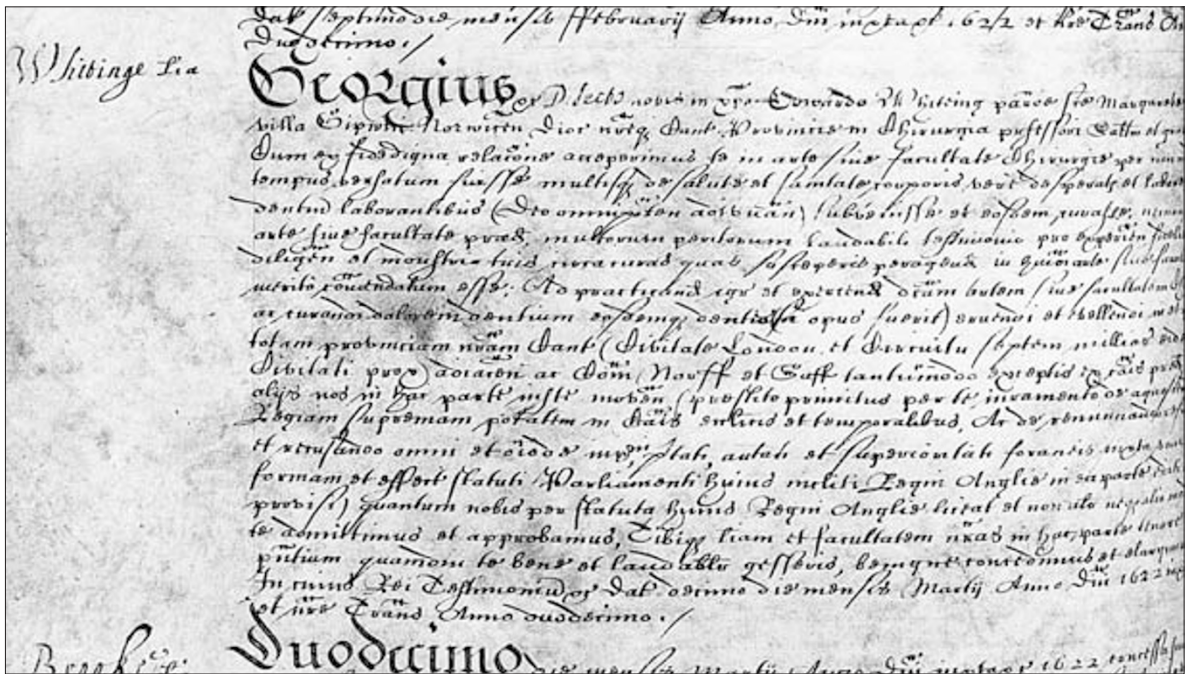 dat septimo die mensis ffebruarij Anno Dñi iuxta &c 1622 et nre Trans
Duodecimo ./
Whitinge Lia
Georgius &c Dilecto nobis in xpo Edwardo Whiteing paroe Ste Margarete
villa Gipwic Norwicen Dioc nreq Cant Provincie in Chirurgia professori Saltm et
Cum ex fidedigna relacoe acceperimus te in arte sive facultate Chirurgie per
tempus versatum fuisse multisq de salute et sanitate corporis vere desperat et
dentiu laborantibus (Deo omnipoten adiuvan) subvenisse et eosdem curasse,
arte sive facultate pred, multorum peritorum laudabili testimonio pro experien
diligen et industria tuis circa curas quas susceperis peragend in huiusmodi arte sive
merito comendatum esse; Ad practicand igr et exercend dcam artem sive facultatem
ac curandi dolorem dentium eosdemq dentes (si opus fuerit) eruendi et evellendi
totam provinciam nram Cant (Civitate London et Circuitu septem milliar
Civitati pred adiacen ac Com Norff et Suff tantumodo exceptis) ex cais pred
alijs nos in hac parte iuste moven (prestito primitus per te iuramento de agnoscendo
Regiam supremam ptatem in cais ecclicis et temporalibus, Ac de renunciando
et recusando omni et oiode iurisdiconi, ptati, autati et superioritati forancis iuxta
formam et effect statuti Parliamenti huius incliti Regni Anglie in ea parte edit
provisi) quantum nobis per statuta huius Regni Anglie liceat et non alr neq alio
te admittimus et approbamus, Tibiq liam et facultatem nras in hac parte tenore
pntium quamdiu te bene et laudablr gesseris, benigne concedimus et elargimur
In cuius Rei Testimoniu &c Dat decimo die mensis Martij Anno Dñi 1622
et nre Trans Anno duodecimo ./
Duodecimo die mensis Martij Anno Dñi iuxta &c 1622 concessa